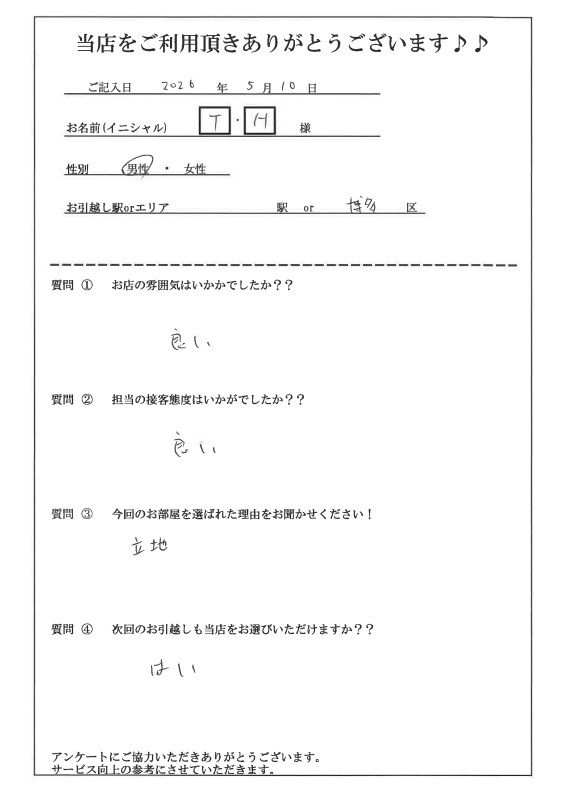 当店をご利用頂きありがとうございます♪♪
ご記入日 2026 年 5 月 10 日
お名前(イニシャル) T・H 様
性別 男性 ・ 女性
お引越し駅orエリア 駅 or 博多 区
質問 ① お店の雰囲気はいかかでしたか??
良い
質問 ② 担当の接客態度はいかがでしたか??
良い
質問 ③ 今回のお部屋を選ばれた理由をお聞かせください!
立地
質問 ④ 次回のお引越しも当店をお選びいただけますか??
はい
アンケートにご協力いただきありがとうございます。
サービス向上の参考にさせていただきます。